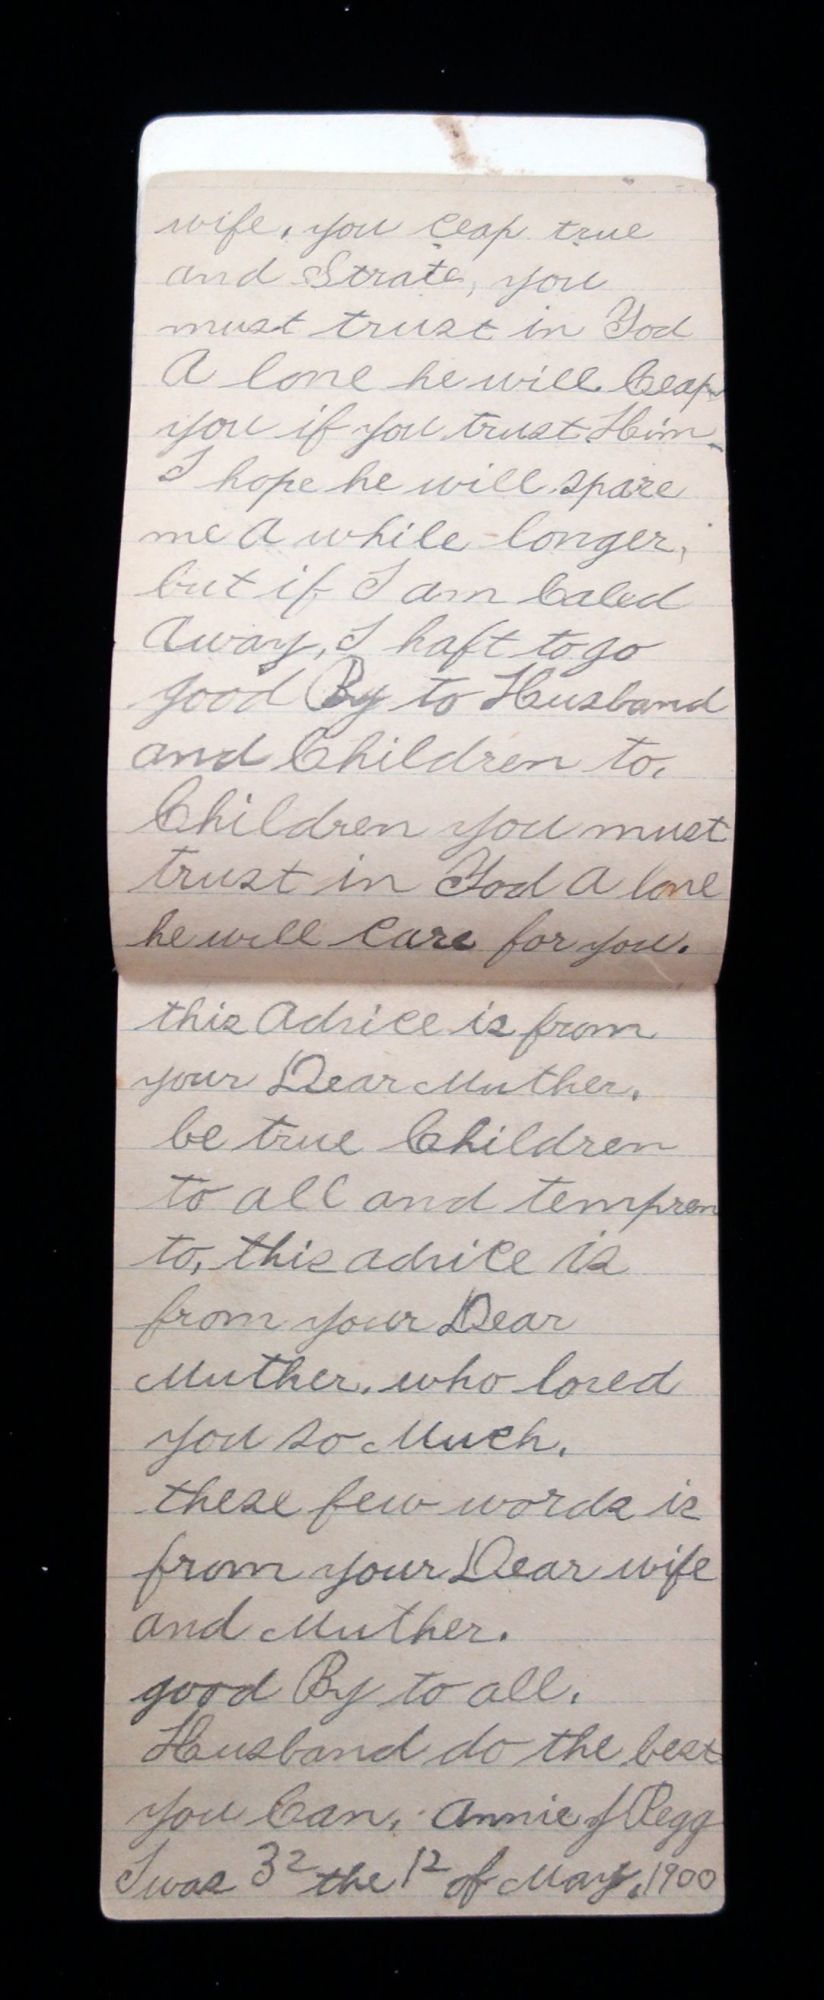 wife. you ceap true
and Strate, you
must trust in God
A lone he will Ceap
you if you trust Him.
I hope he will spare
me A while longer,
but if I am Caled
Away, I haft to go
good By to Husband
and Children to.
Children you must
trust in God A lone
he will care for you.
this Advice is from
your Dear Muther.
be true Children
to all and tempren
to, this advice is
from your Dear
Muther. who loved
you so Much.
these few words is
from your Dear wife
and Muther.
good By to all.
Husband do the best
you Can. Annie J Pegg
I was 32 the 12 of May. 1900